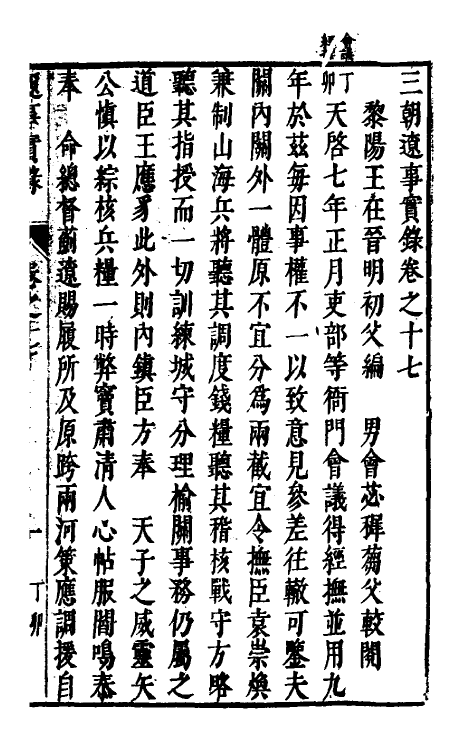 會議
三朝遼事實錄卷之十七
黎陽王在晉明初父編　男會苾穉蒭父較閱
丁卯天啓七年正月吏部等衙門會議得經撫並用九
年於茲每因事權不一以致意見參差往轍可鑒夫
關內關外一體原不宜分爲兩截宜令撫臣袁崇煥
兼制山海兵將聽其調度錢糧聽其稽核戰守方略
聽其指授而一切訓練城守分理榆關事務仍屬之
道臣王應豸此外則內鎮臣方奉　天子之威靈矢
公慎以綜核兵糧一時弊竇肅清人心帖服閻鳴泰
奉　命總督薊遼賜履所及原跨兩河策應調援自
遼事實錄
卷之十七
一
丁卯